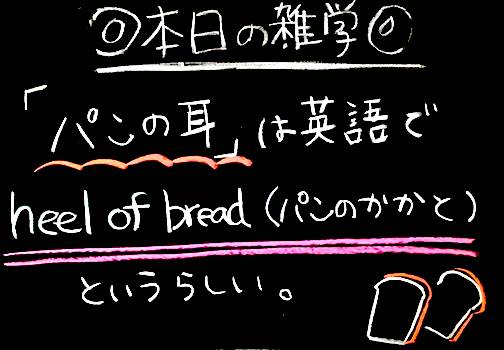 ◎本日の雑学◎
「パンの耳」は英語で
heel of bread (パンのかかと)
というらしい。